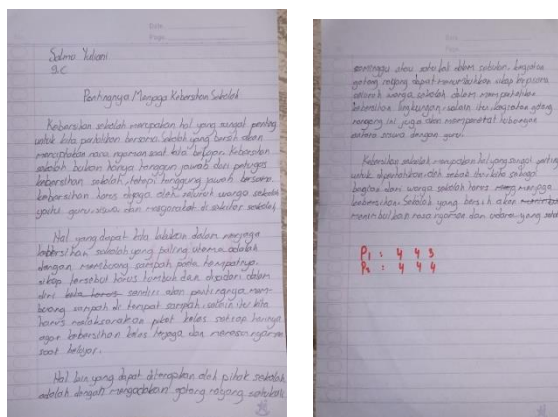 Date
Page
Salma Yuliani
9.C
Pentingnya Menjaga Kebersihan Sekolah
Kebersihan sekolah merupakan hal yang sangat penting
untuk kita perhatikan bersama. Sekolah yang bersih akan
menciptakan rasa nyaman saat kita belajar. Kebersihan
sekolah bukan hanya tanggung jawab dari petugas
kebersihan sekolah, tetapi tanggung jawab bersama.
kebersihan harus dijaga oleh seluruh warga sekolah
yaitu guru, siswa dan masyarakat di sekitar sekolah.
Hal yang dapat kita lakukan dalam menjaga
kebersihan sekolah yang paling utama adalah
dengan membuang sampah pada tempatnya.
sikap tersebut harus tumbuh dan disadari dalam
diri kita harus sendiri akan pentingnya mem-
buang sampah di tempat sampah. selain itu kita
harus melaksanakan piket kelas setiap harinya
agar kebersihan kelas terjaga dan merasa nyaman
saat belajar.
Hal lain yang dapat diterapkan oleh pihak sekolah
adalah dengan mengadakan gotong royong satu kali
Date
seminggu atau satu kali dalam sebulan. kegiatan
gotong royong dapat menumbuhkan sikap kerjasama
seluruh warga sekolah dalam memperhatikan
kebersihan lingkungan. selain itu, kegiatan gotong
royong ini juga akan mempererat hubungan
antara siswa dengan guru.
Kebersihan sekolah merupakan hal yang sangat penting
untuk diperhatikan. oleh sebab itu kita sebagai
bagian dari warga sekolah harus menjaga
kebersihan. Sekolah yang bersih akan
menimbulkan rasa nyaman dan udara yang
P1 : 4 4 3
P2 : 4 4 4